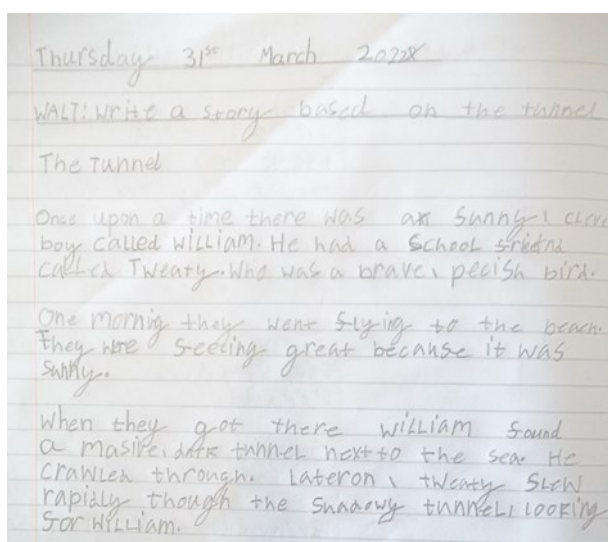 Thursday 31st March 2022
WALT: write a story based on the tunnel
The Tunnel
Once upon a time there was a sunny, 
boy called william. He had a School friend
called Tweaty. Who was a brave, pecish bird.
One mornig they went flying to the beach.
They wre feeling great because it was
sunny.
When they got there william found
a masive, dark tunnel next to the sea. He
crawled through. Lateron, tweaty flew
rapidly though the shadowy tunnel, looking
for william.